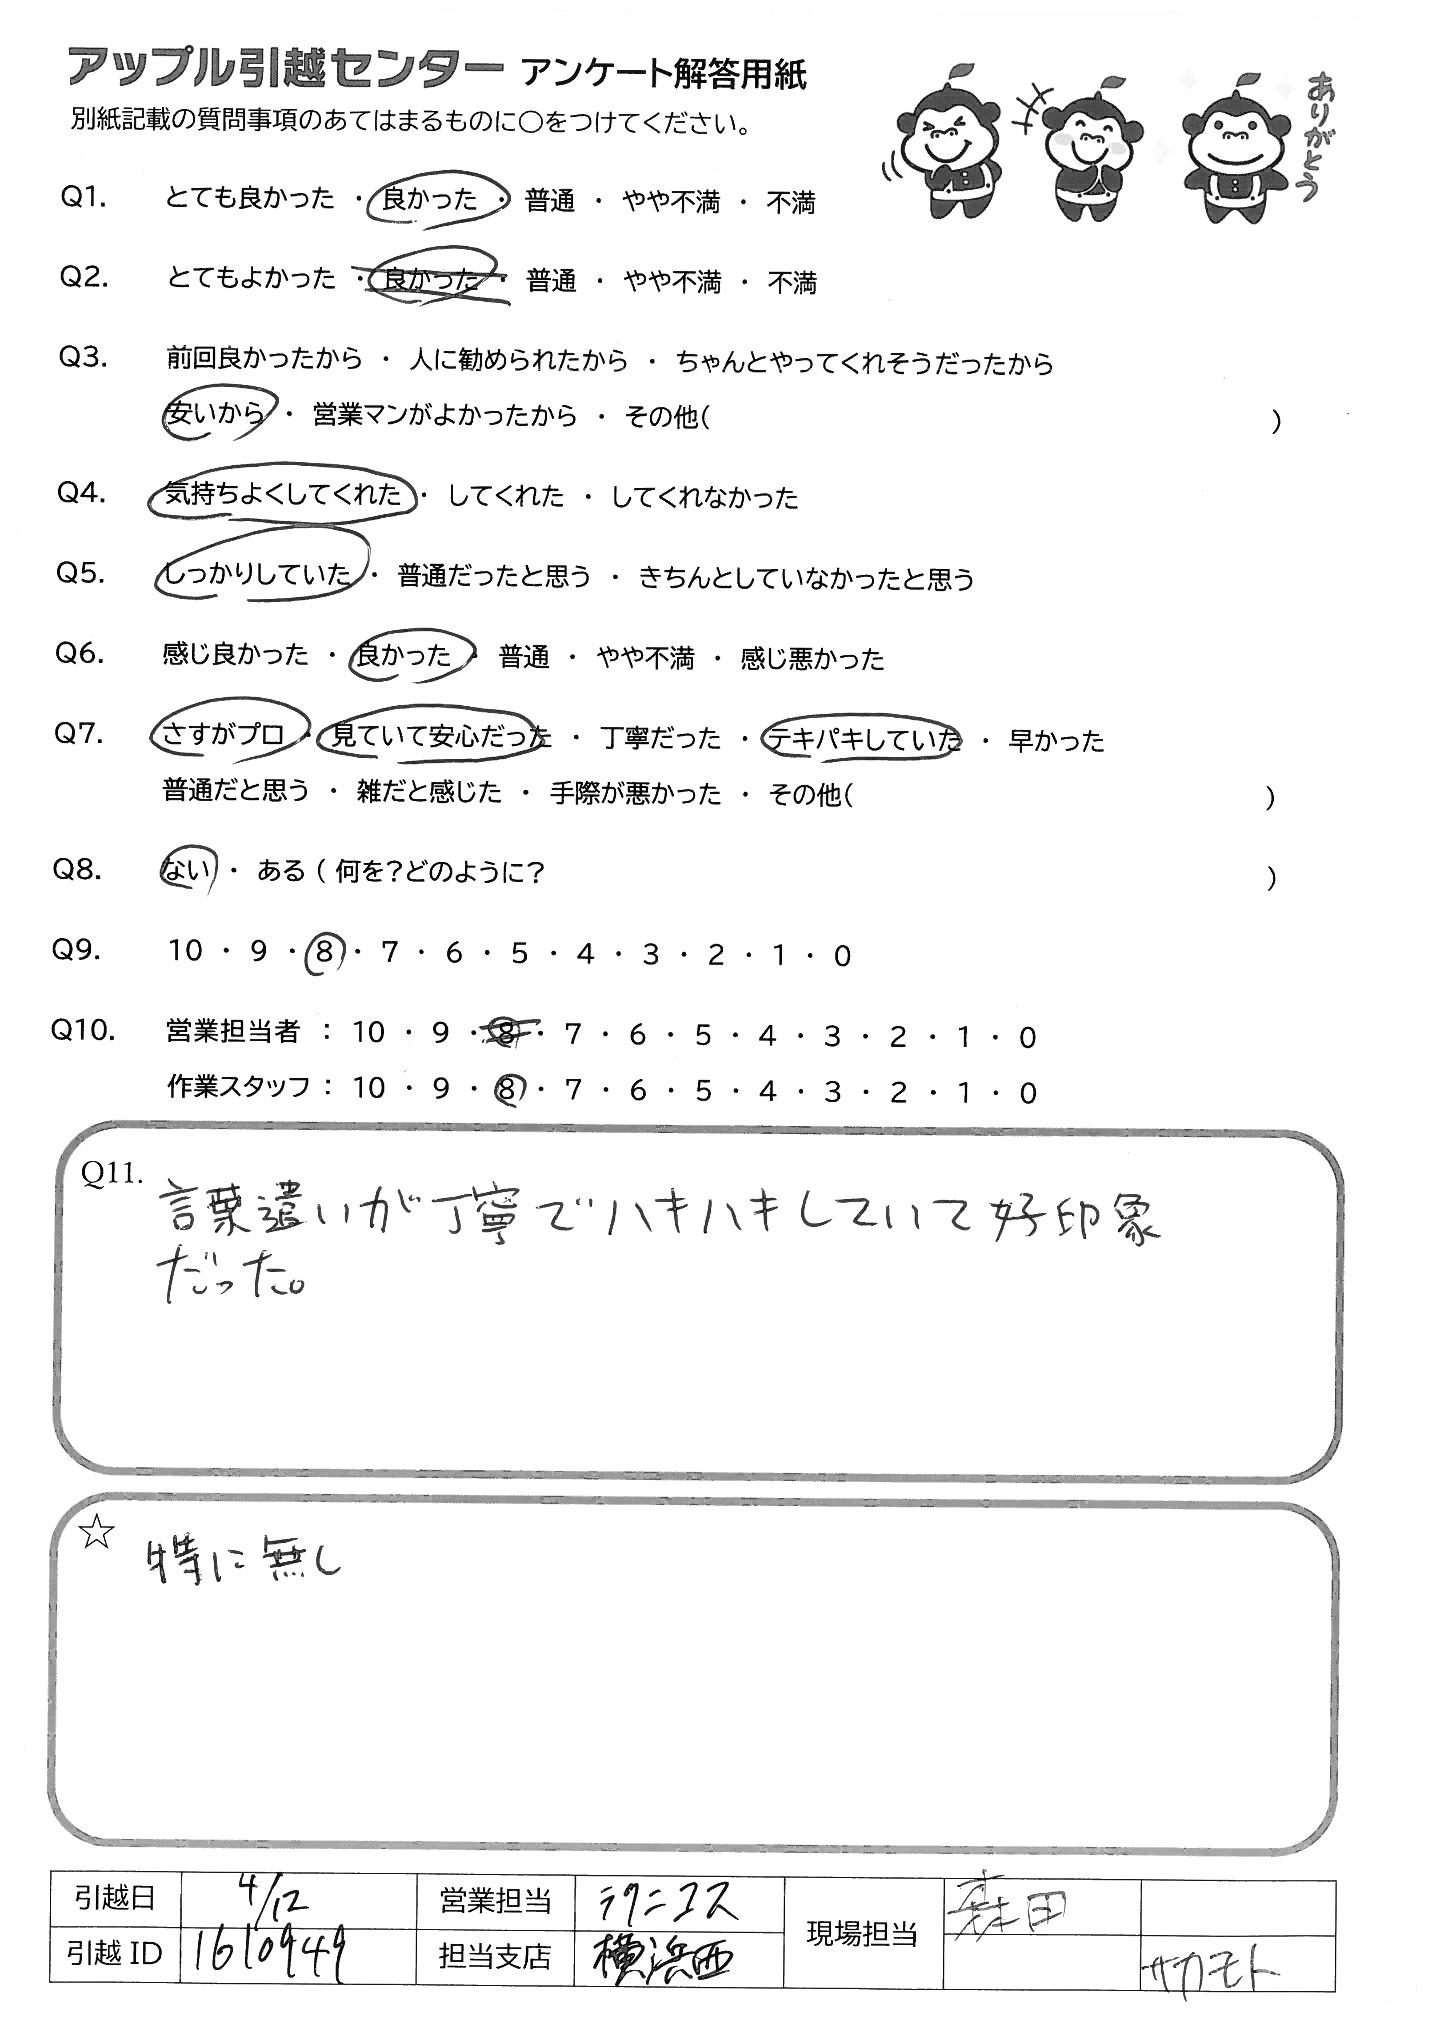 アップル引越センター アンケート解答用紙
別紙記載の質問事項のあてはまるものに○をつけてください。
ありがとう
Q1. とても良かった ・ 良かった ・ 普通 ・ やや不満 ・ 不満
Q2. とてもよかった ・ 良かった ・ 普通 ・ やや不満 ・ 不満
Q3. 前回良かったから ・ 人に勧められたから ・ ちゃんとやってくれそうだったから
安いから ・ 営業マンがよかったから ・ その他( )
Q4. 気持ちよくしてくれた ・ してくれた ・ してくれなかった
Q5. しっかりしていた ・ 普通だったと思う ・ きちんとしていなかったと思う
Q6. 感じ良かった ・ 良かった ・ 普通 ・ やや不満 ・ 感じ悪かった
Q7. さすがプロ ・ 見ていて安心だった ・ 丁寧だった ・ テキパキしていた ・ 早かった
普通だと思う ・ 雑だと感じた ・ 手際が悪かった ・ その他( )
Q8. ない ・ ある ( 何を?どのように? )
Q9. 10 ・ 9 ・ 8 ・ 7 ・ 6 ・ 5 ・ 4 ・ 3 ・ 2 ・ 1 ・ 0
Q10. 営業担当者 : 10 ・ 9 ・ 8 ・ 7 ・ 6 ・ 5 ・ 4 ・ 3 ・ 2 ・ 1 ・ 0
作業スタッフ : 10 ・ 9 ・ 8 ・ 7 ・ 6 ・ 5 ・ 4 ・ 3 ・ 2 ・ 1 ・ 0
Q11. 言葉遣いが丁寧でハキハキしていて好印象
だった。
☆ 特に無し
引越日 4/12 営業担当 ラクニコス 現場担当 森田
引越ID 1610949 担当支店 横浜西 サカモト